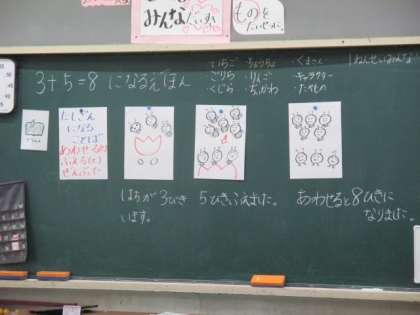 みんな
ものを
たいせつに
いちご
ごりら りんご キャラクター
くじら ちいかわ たべもの
1ねんせい みんな
3+5=8 になるえほん
たしざん
になる
ことば
あわせると
ふえると
ぜんぶで
はちが3びき
います。
5ひきふえました。
あわせると8ひきに
なりました。